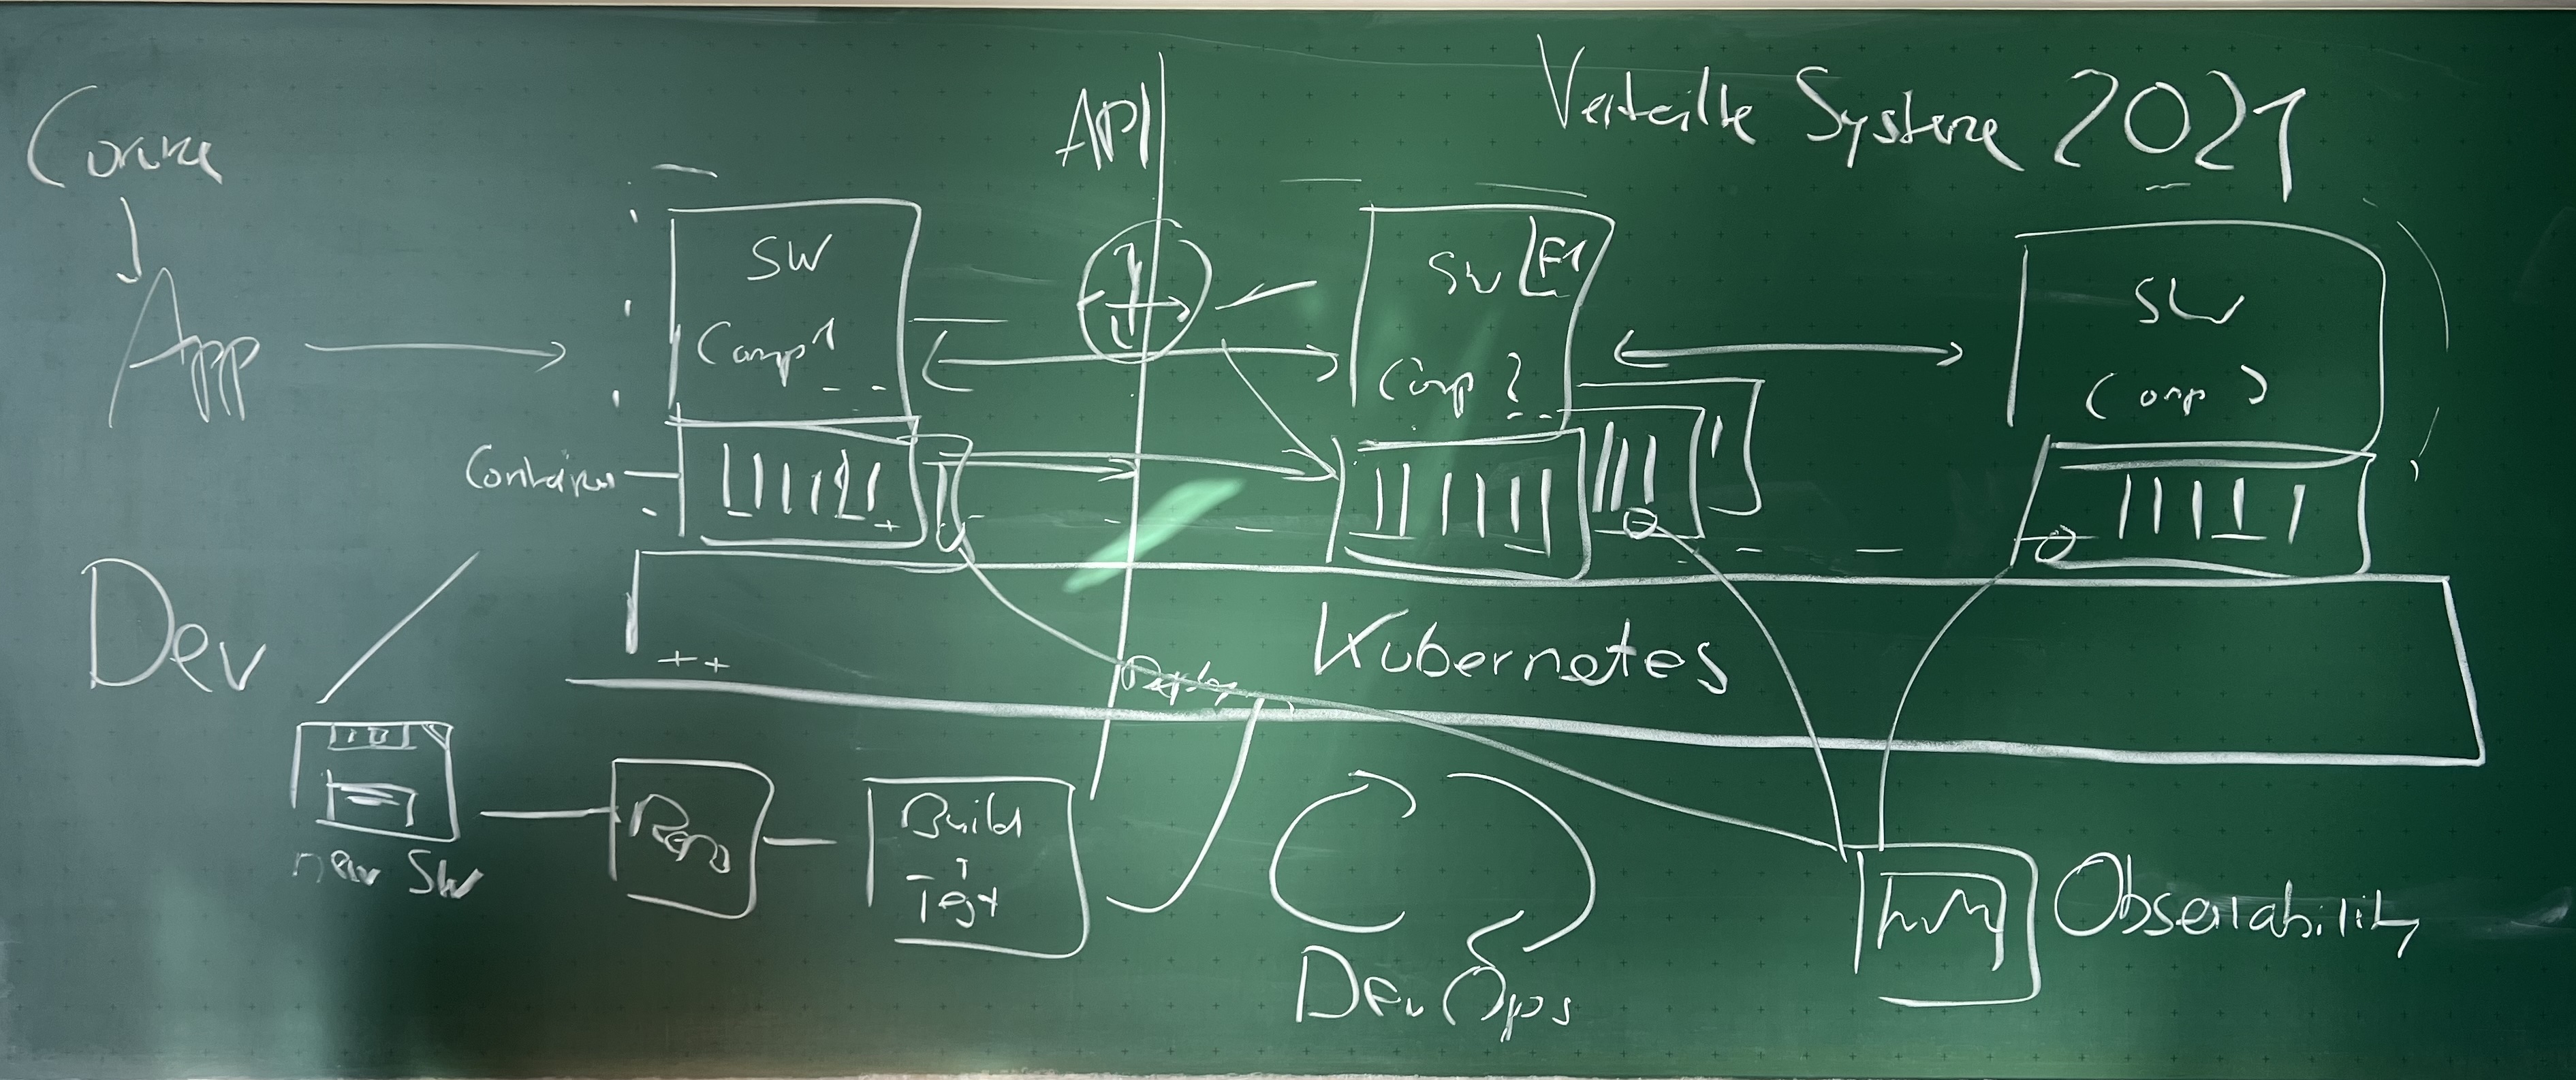 Verteilte Systeme 2021
API
Corona
App
SW
Comp 1
SW
Comp 2
SW
Comp 3
Container
Dev
Kubernetes
++
Deploy
new SW
Repo
Build
+
Test
DevOps
Observability